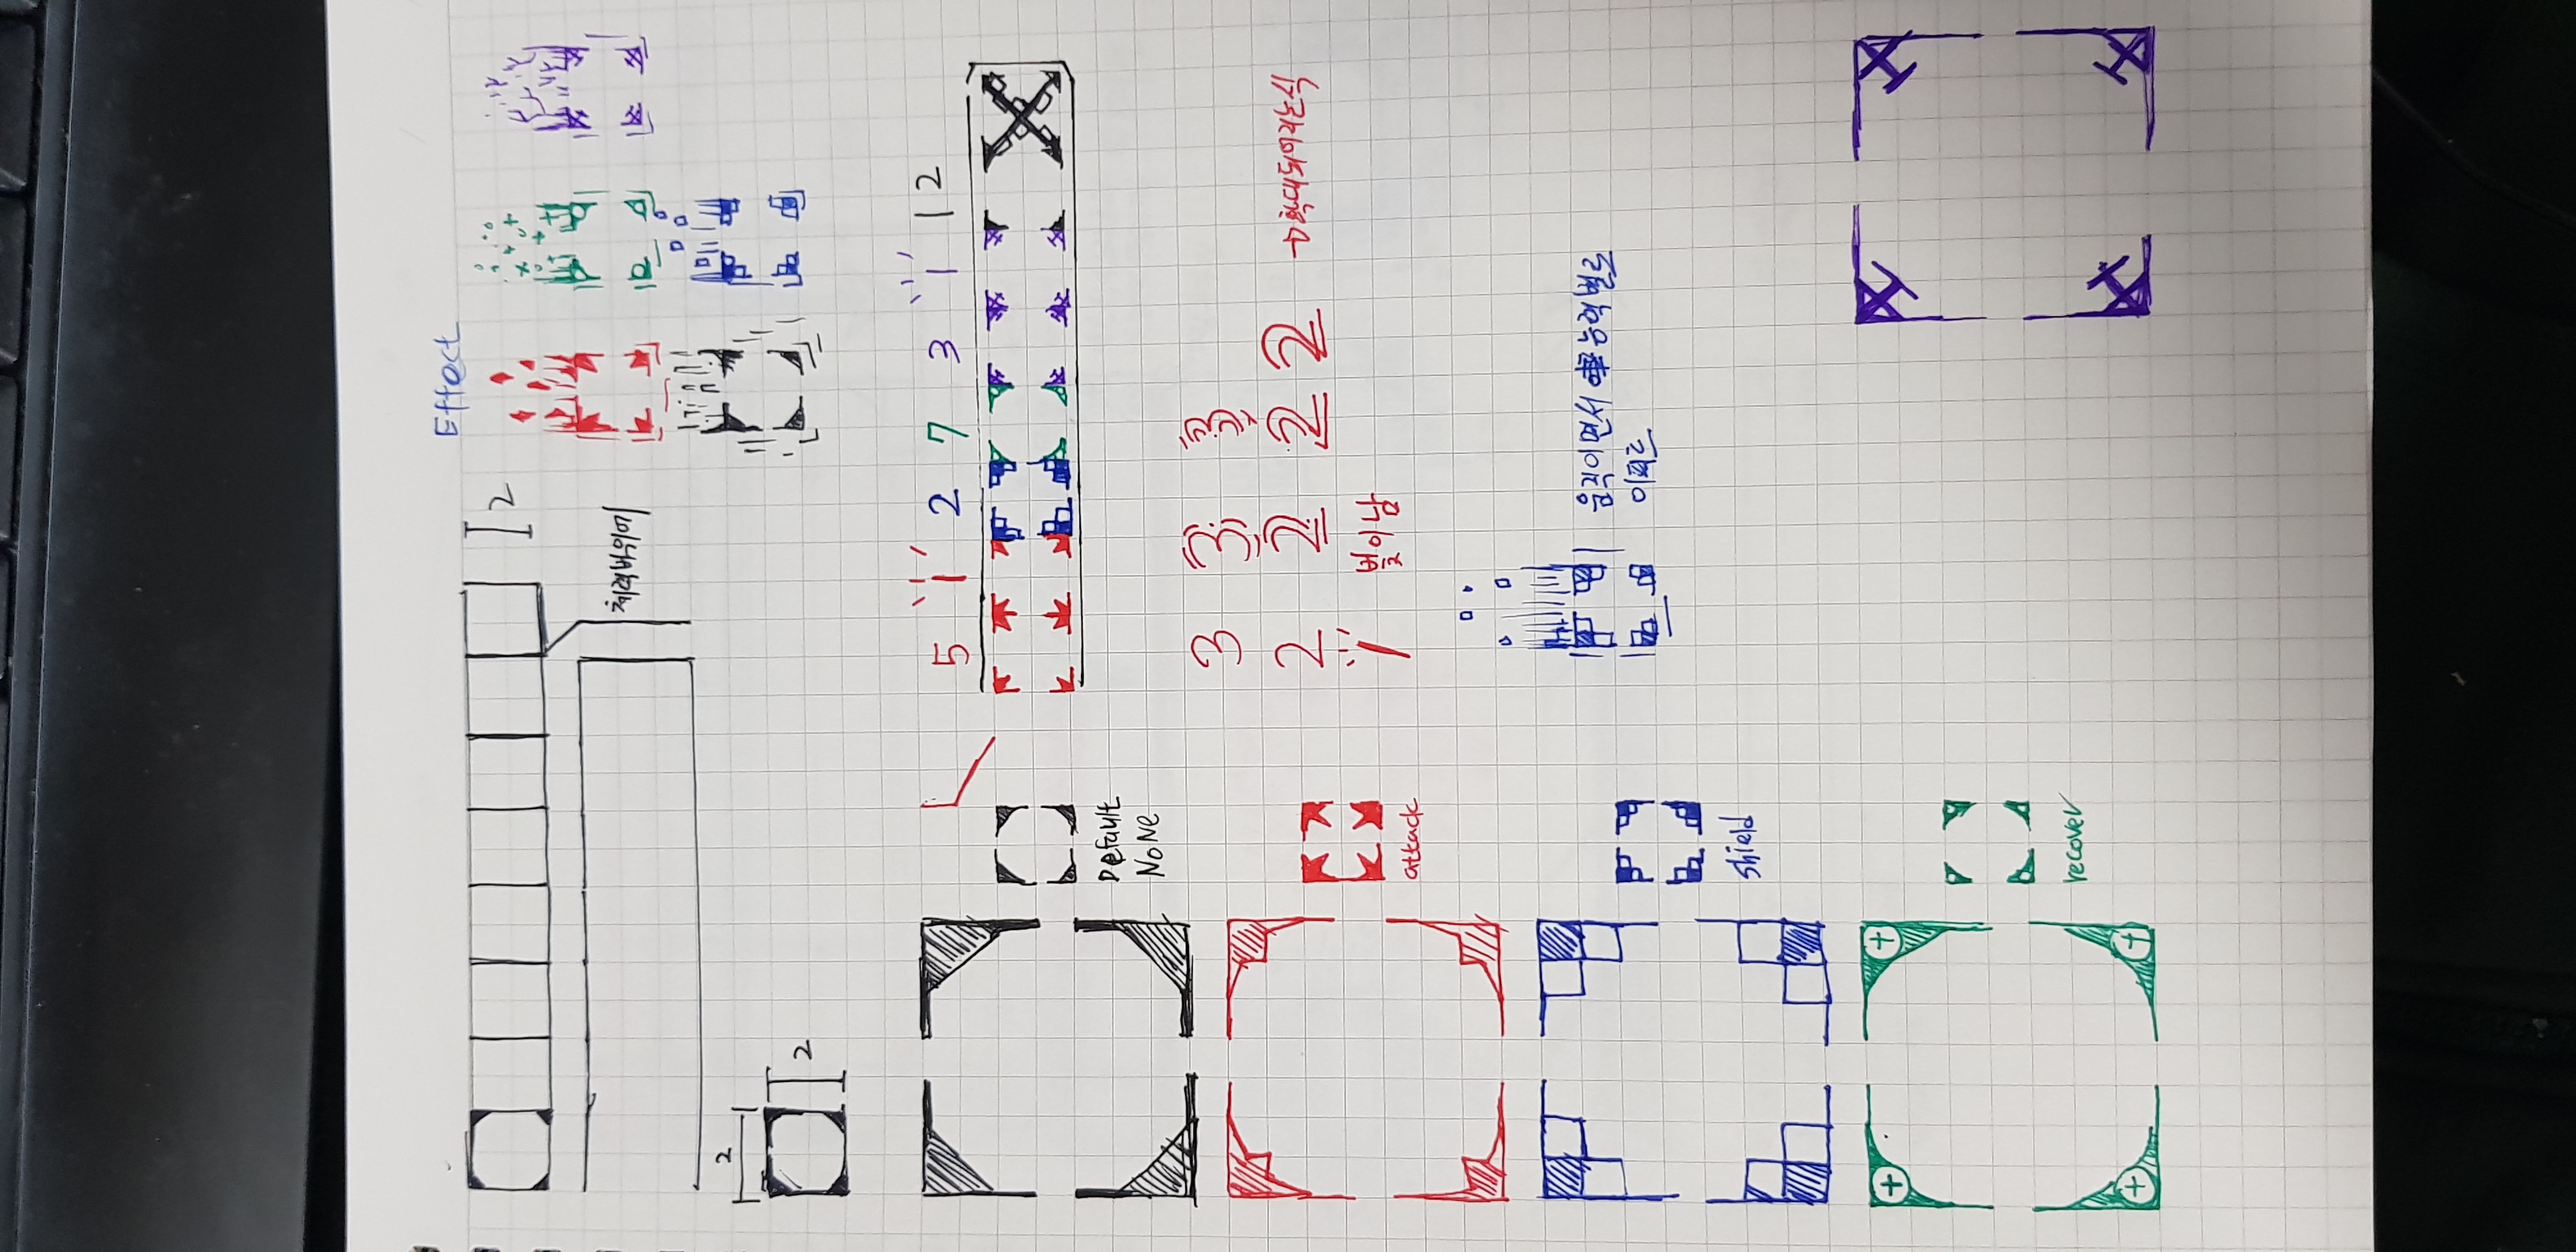 Effect
2
체력바위에
2
2
5 1 2 7 3 1 12
Default
NoNe
3 3 3
2 2 2 2 → 확대되어지는식
1 빛이남
attack
움직이면서 능력별로
이펙트
shield
recover